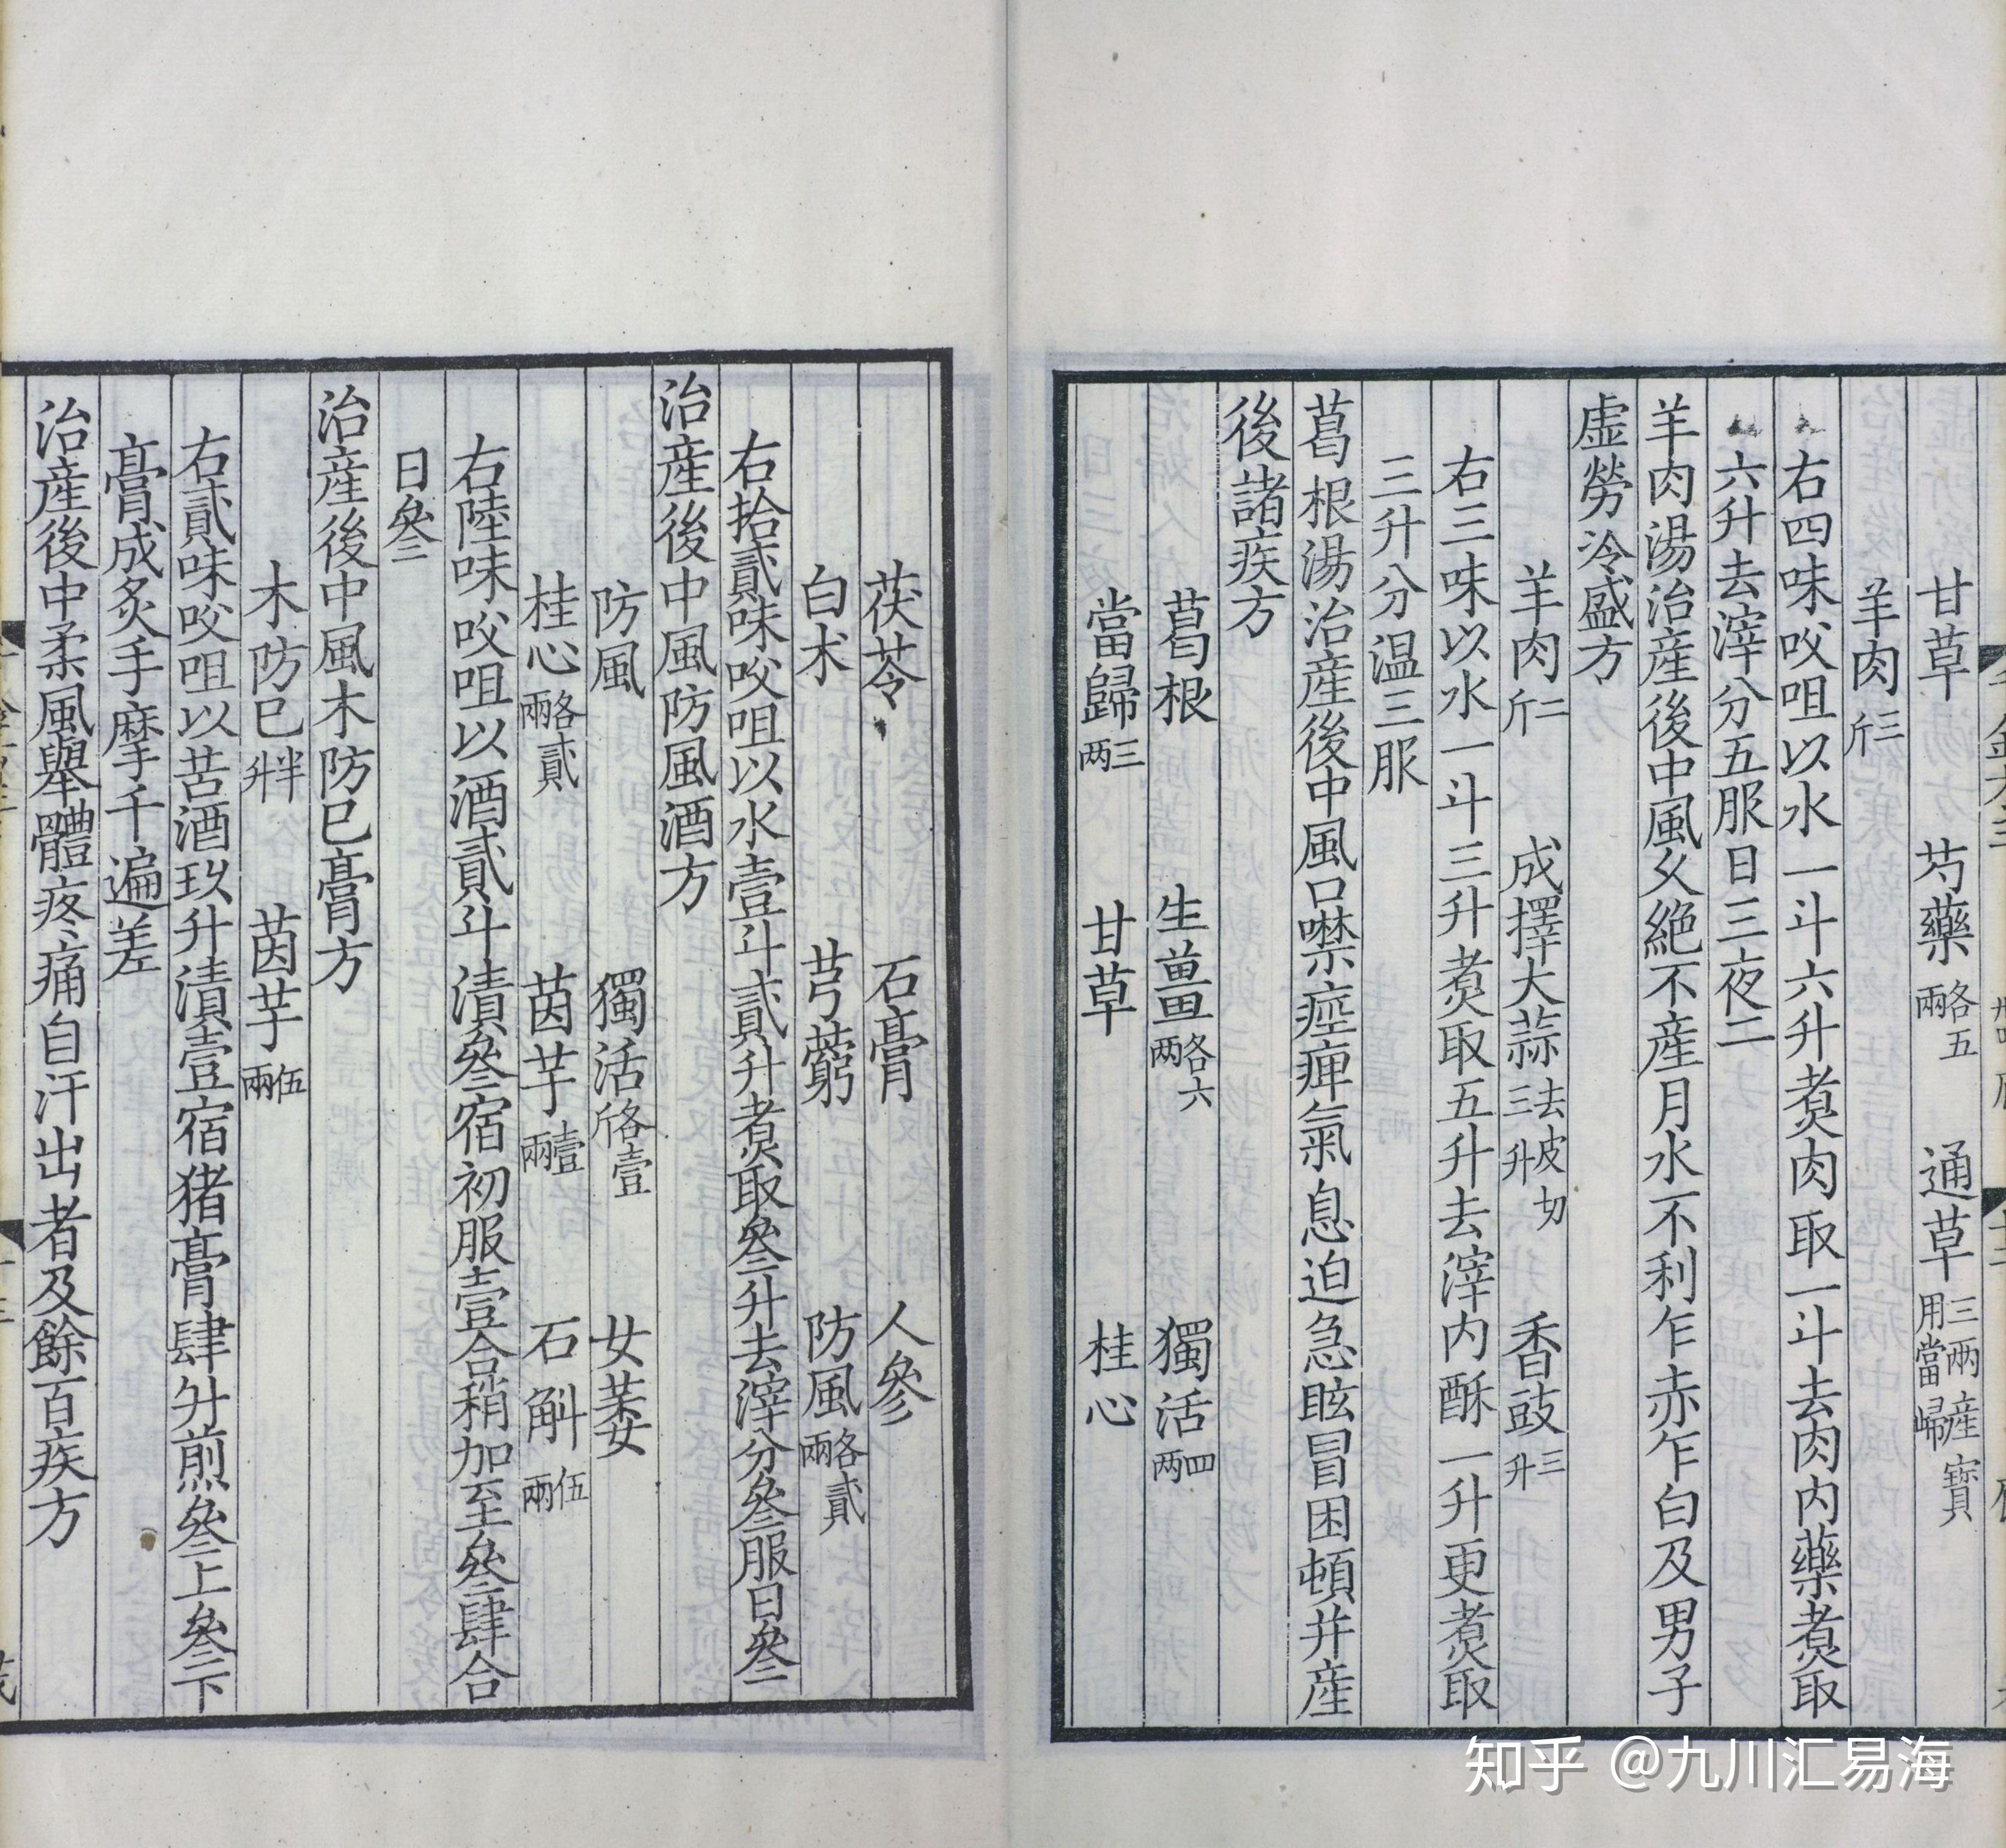 甘草 芍藥各五兩 通草三两産寶用當歸
羊肉三斤
右四味㕮咀以水一斗六升煑肉取一斗去肉内藥煑取
六升去滓分五服日三夜二
羊肉湯治産後中風乆絶不産月水不利乍赤乍白及男子
虚勞冷盛方
羊肉二斤 成擇大蒜去皮切三升 香豉三升
右三味以水一斗三升煑取五升去滓内酥一升更煑取
三升分温三服
葛根湯治産後中風口噤痙痺氣息迫急眩冒困頓并産
後諸疾方
葛根 生薑各六两 獨活四两
當歸三两 甘草 桂心
茯苓 石膏 人參
白术 芎藭 防風各貳兩
右拾貳味㕮咀以水壹斗貳升煑取叄升去滓分叄服日叄
治産後中風防風酒方
防風 獨活各壹斤 女萎
桂心各貳兩 茵芋壹兩 石斛伍兩
右陸味㕮咀以酒貳斗漬叄宿初服壹合稍加至叄肆合
日叄
治産後中風木防巳膏方
木防巳半升 茵芋伍兩
右貳味㕮咀以苦酒玖升漬壹宿猪膏肆升煎叄上叄下
膏成炙手摩千遍差
治産後中柔風舉體疼痛自汗出者及餘百疾方
知乎 @九川汇易海